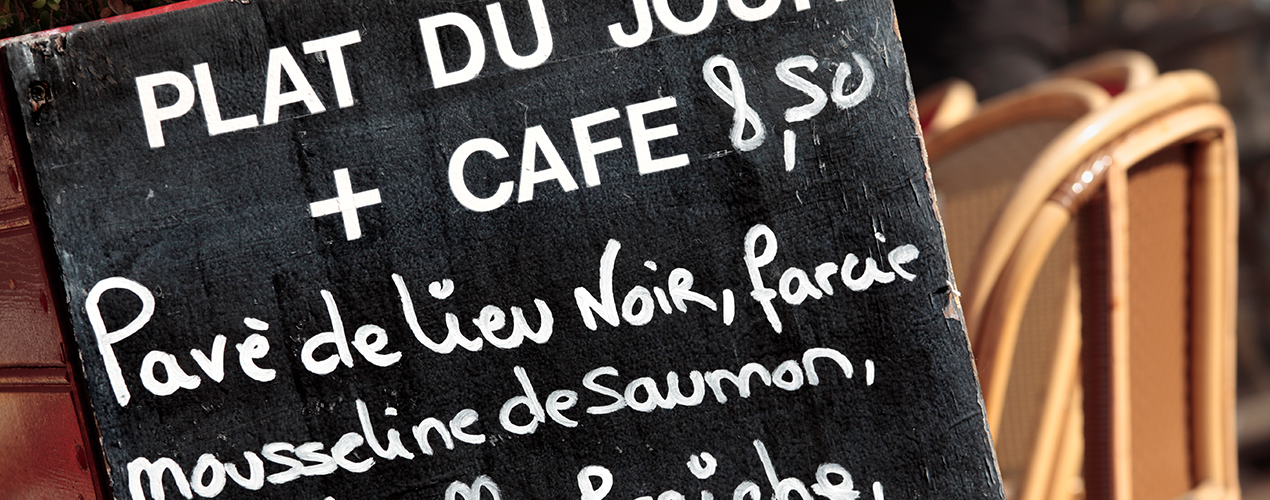 PLAT DU JOUR
+ CAFE 8,50
Pavè de lieu Noir, farcie
mousseline de saumon,
fraîche,